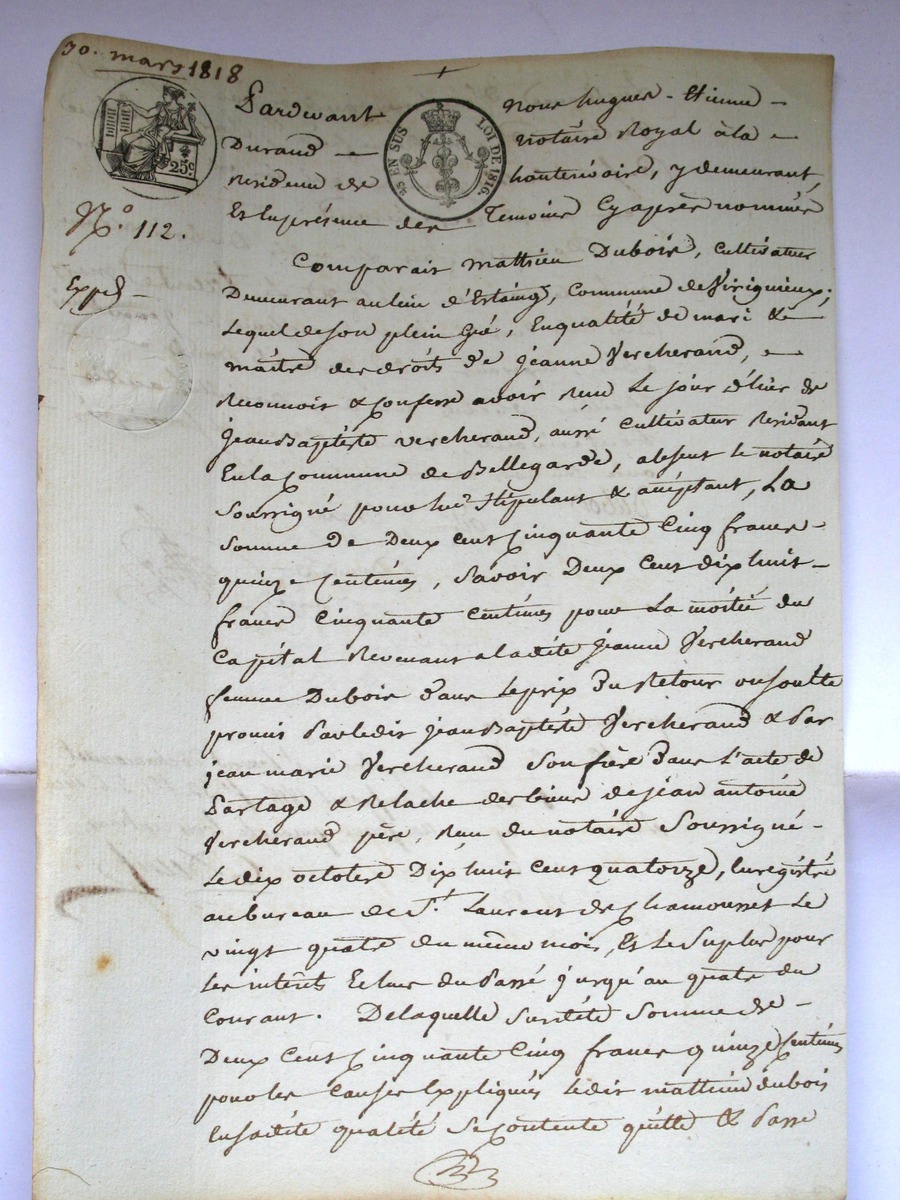 30. mars 1818
25 c
25 EN SUS LOI DE 1816.
N.° 112.
Expéd
Pardevant Nous hugues - Etienne -
Durand - notaire Royal à la
Residence de hauterivoire, y demeurant,
Et En présence des Temoins Cy après nommés
Comparait Mathieu Dubois, Cultivateur
Demeurant au lieu d'Estaing, Commune de Virignieux;
Lequel de son plein Gré, En qualité de mari &
maître des droits de jeanne Vercherand,
Reconnoit & Confesse avoir Reçu Le jour d'hier de
jean Baptiste vercherand, aussi Cultivateur Residant
En la Commune de Bellegarde, absent le notaire
Soussigné pour lui Stipulant & acceptant, La
Somme De Deux Cent Cinquante Cinq francs
quinze Centimes, Savoir Deux Cent dix huit
francs Cinquante Centimes pour La moitié du
Capital Revenant a ladite jeanne Vercherand
femme Dubois dans Le prix Du Retour ou soulte
promis Par ledit jean Baptiste Vercherand & Par
jean marie Vercherand Son frère Dans L'acte de
Partage & Relache des biens de jean antoine
Vercherand père, Reçu du notaire Soussigné
Le dix octobre Dix huit Cent quatorze, Enregistré
au bureau de S.t Laurent de Chamousset Le
vingt quatre du même mois, Et le Surplus pour
Les intérêts Echus du Passé jusqu'au quatre du
Courant. De laquelle Susdite Somme de
Deux Cent Cinquante Cinq francs quinze Centimes
pour les Causes Expliqués Ledit mathieu dubois
En sadite qualité Se Contente quitte & Passe